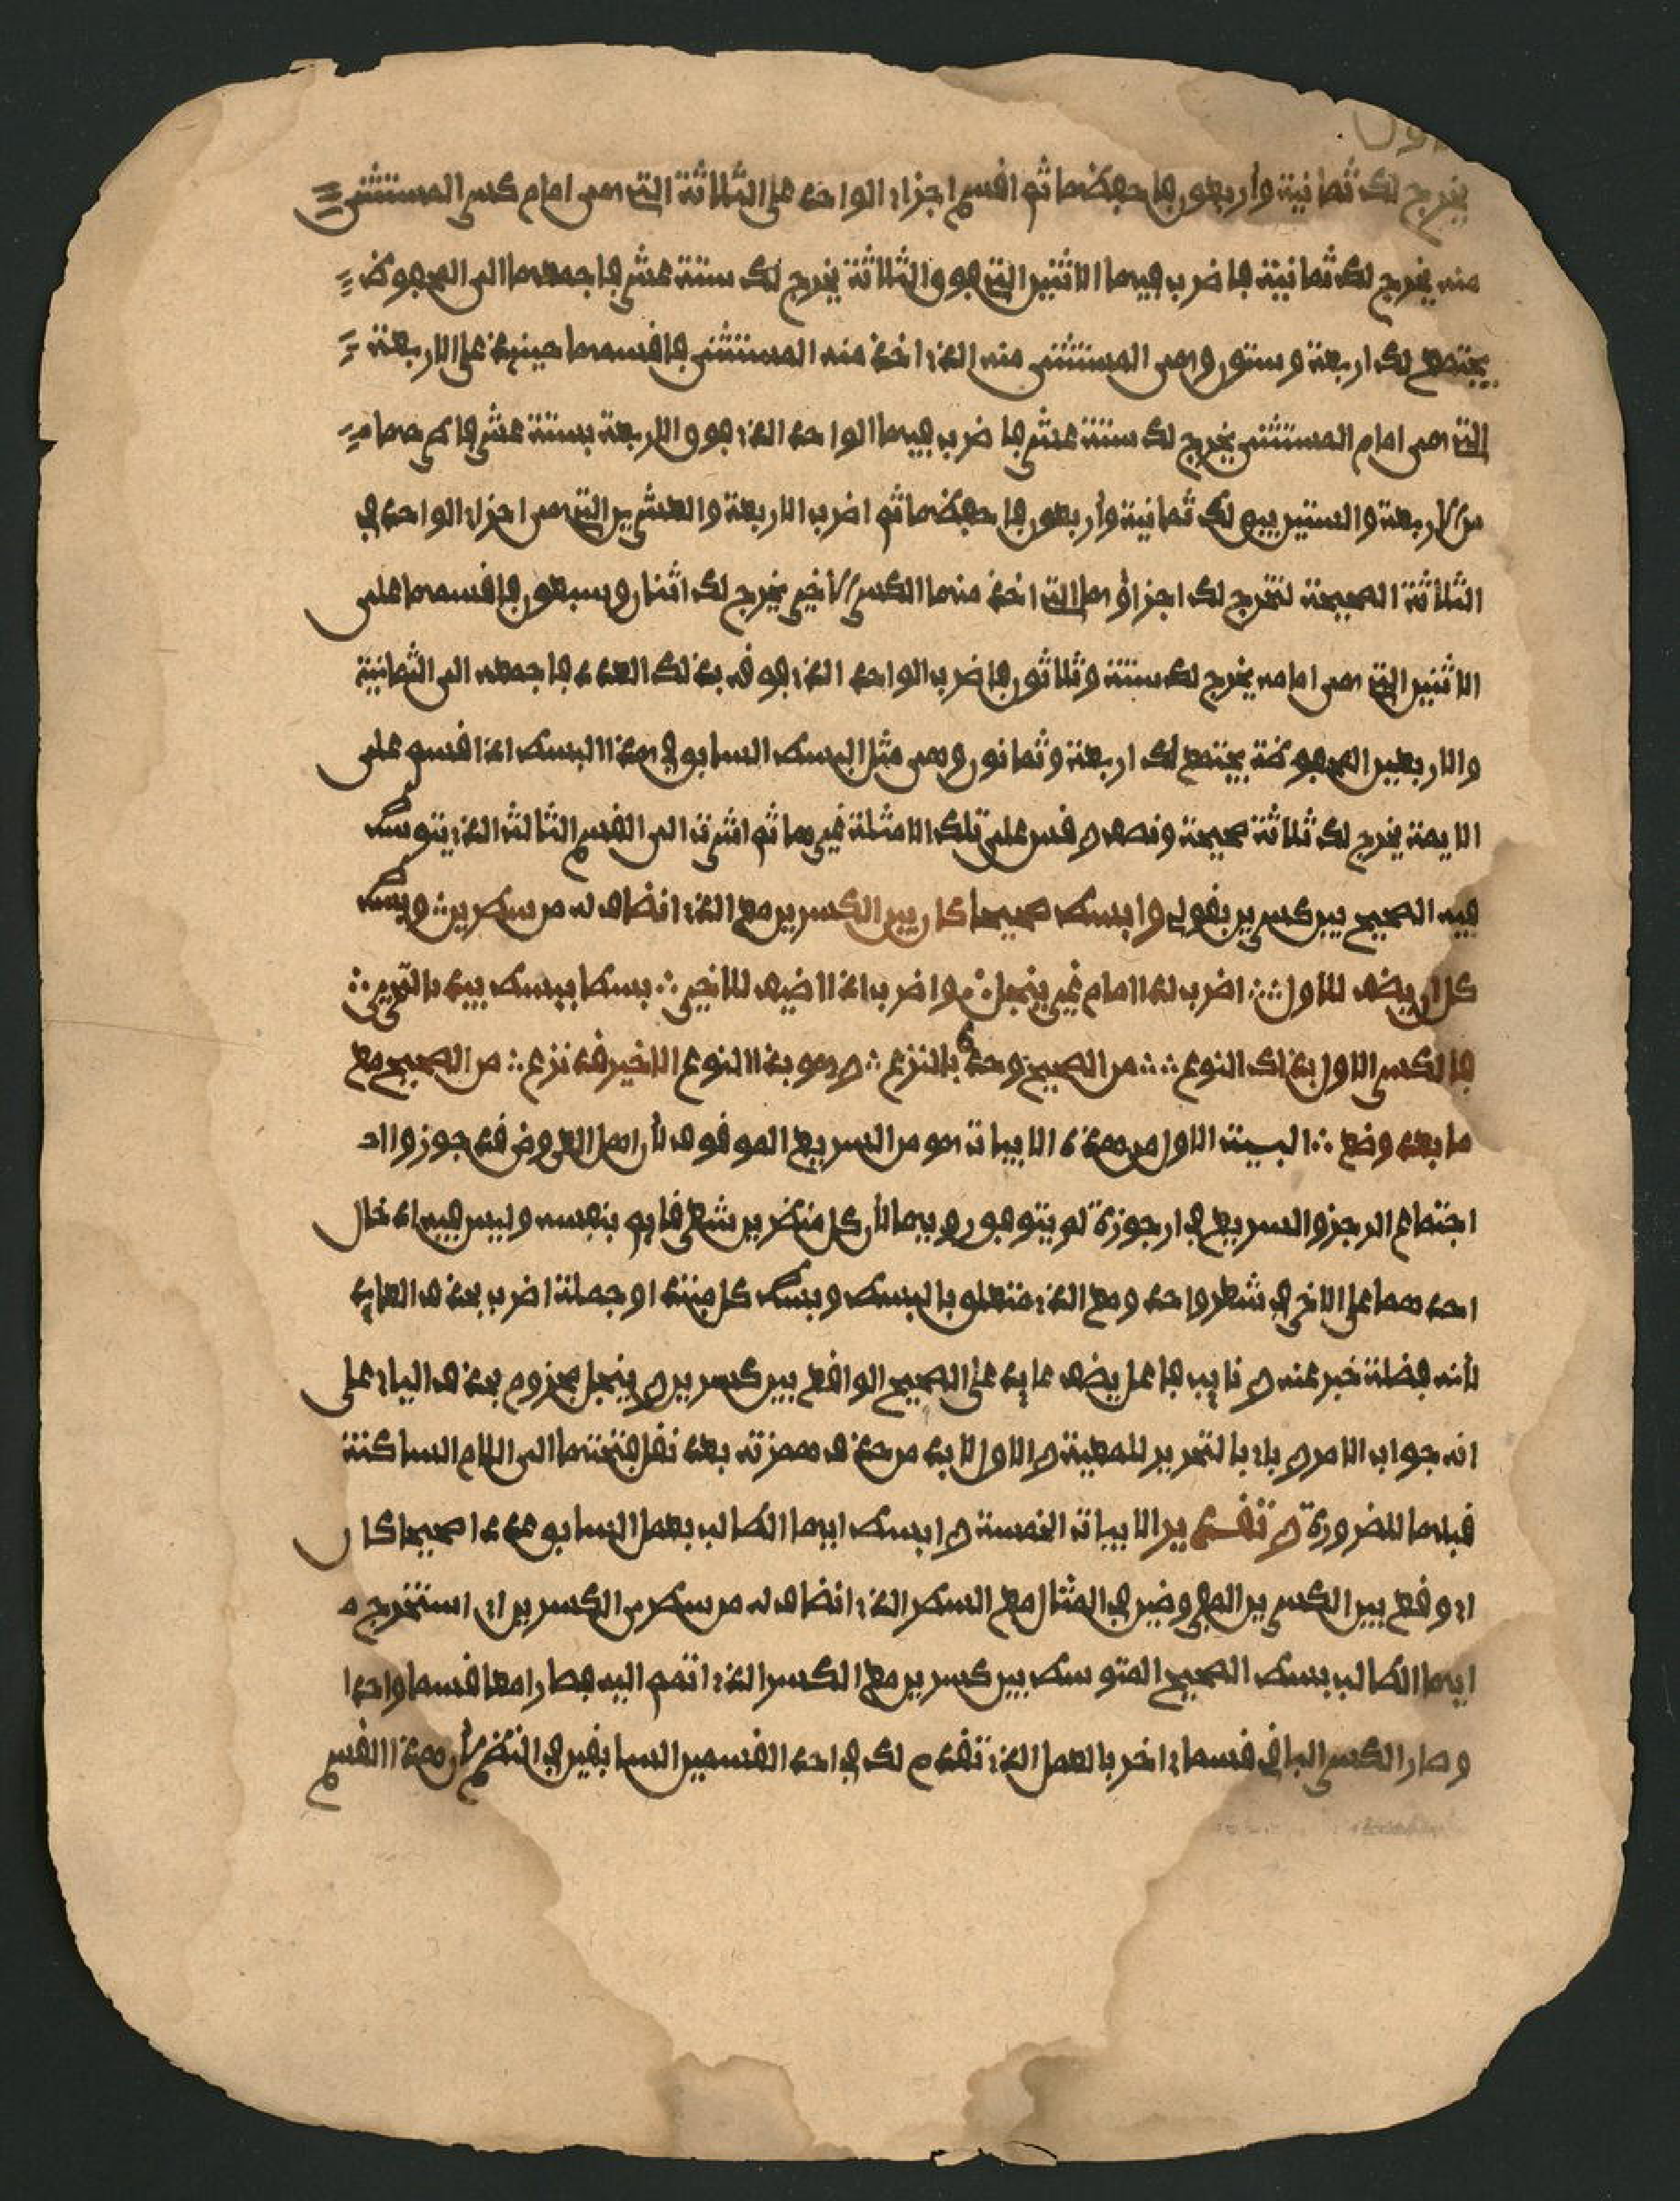 يخرج لك ثمانية وأربعون فاحفظها ثم اقسم اجزاء الواحد على الثلاثة التي هي امام كسر المستثنى
منه يخرج لك ثمانية فاضرب فيها الاثنين التي فوق الثلاثة يخرج لك ستة عشر فاجمعها الى المحفوظ
يجتمع لك اربعة وستون وهي المستثنى منه الذي اخذ منه المستثنى فاقسمها حينئذ على الاربعة
التي هي امام المستثنى يخرج لك ستة عشر فاضرب فيها الواحد الذي فوق الاربعة بستة عشر فاطرحها
من الاربعة والستين يبق لك ثمانية وأربعون فاحفظها ثم اضرب الاربعة والعشرين التي هي اجزاء الواحد في
الثلاثة الصحيحة لتخرج لك اجزاؤها التي اخذ منها الكسر الاخير يخرج لك اثنان وسبعون فاقسمها على
الاثنين التي هي امامه يخرج لك ستة وثلاثون فاضرب الواحد الذي فوقه بذلك العدد فاجمعه الى الثمانية
والاربعين المحفوظة يجتمع لك اربعة وثمانون وهي مثل البسط السابق في هذا البسط اذا قسم على
الايمة يخرج لك ثلاثة صحيحة ونصف وقس على تلك الامثلة غيرها ثم اشرت الى القسم الثالث الذي يتوسط
فيه الصحيح بين كسرين بقولي وابسط صحيحا كان بين الكسرين مع الذي انضاف له من سطرين وبسط
كل ان يضف للاول اضرب لدا امام غير ينجل واضرب اذا اضيف للاخير بسطا ببسط بيد بالتحرير
فالكسر الاول بذاك النوع من الصحيح وحده بالنزع وهو بذا النوع الاخير قد نزع من الصحيح مع
ما بعد وضع البيت الاول من هذه الابيات هو من السريع الموقوف لأن اهل العروض قد جوزوا
اجتماع الرجز والسريع في ارجوزة لم يتوقفون فيها لأن كل منظرين شعر قايم بنفسه وليس فيه ادخال
احدهما على الاخر في شعر واحد ومع الذي متعلق بالبسط وبسط كل مبتدا وجملة اضرب بحذف العايد
لأنه فضلة خبر عنه ونايب فاعل يضف عايد على الصحيح الواقع بين كسرين وينجل مجزوم بحذف الياء على
انه جواب الامر وباء بالتحرير للمعية والاول لا بد من حذف همزته بعد نقل فتحتها الى اللام الساكنة
قبلها للضرورة وتقدير الابيات الخمسة وابسط ايها الطالب بعمل السابق عددا صحيحا كان
اي وقع بين الكسرين المفروضين في المثال مع السطر الذي انضاف له من سطري الكسرين اي استخرج
ايها الطالب بسط الصحيح المتوسط بين كسرين مع الكسر الذي انضم اليه فصارا معا قسما واحدا
وصار الكسر الباقي قسما اخر بالعمل الذي تقدم لك في احد القسمين السابقين في النظم لأن هذا القسم